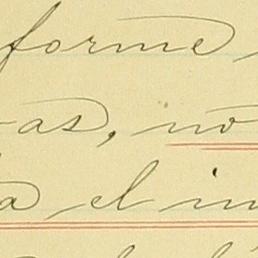 forme
as, no
a el in